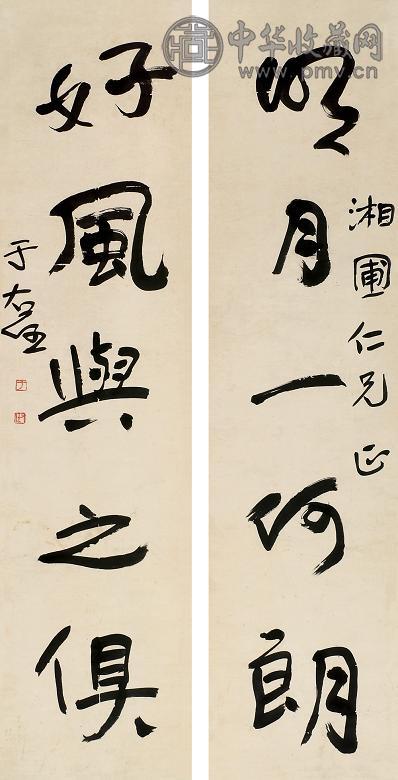 中华收藏网
www.pmv.cn
明月一何朗
湘圃仁兄正
好風與之俱
于右任